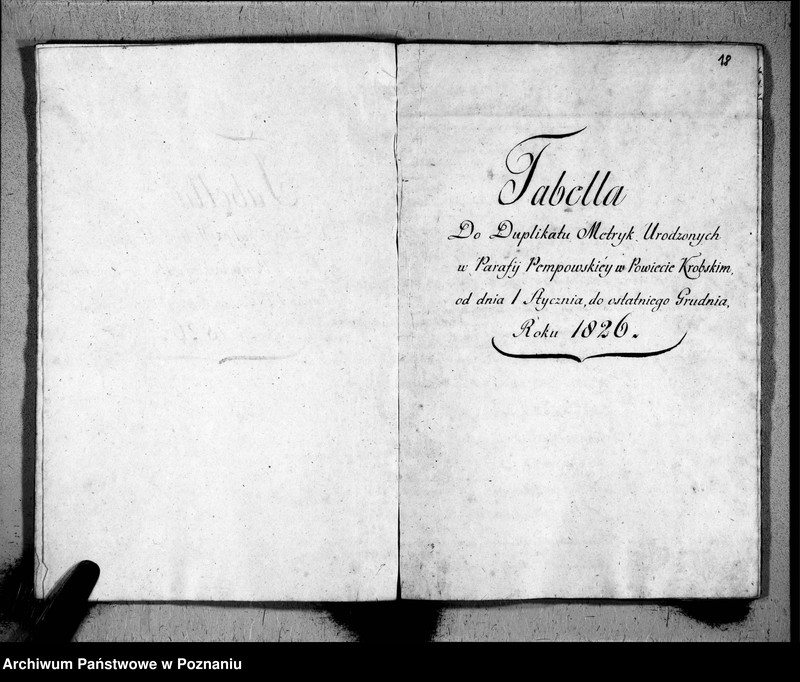 18
Tabella
Do Duplikatu Metryk Urodzonych
w Parafij Pempowskiéy w Powiecie Krobskim,
od dnia 1 Stycznia, do ostatniego Grudnia,
Roku 1826.
Archiwum Państwowe w Poznaniu